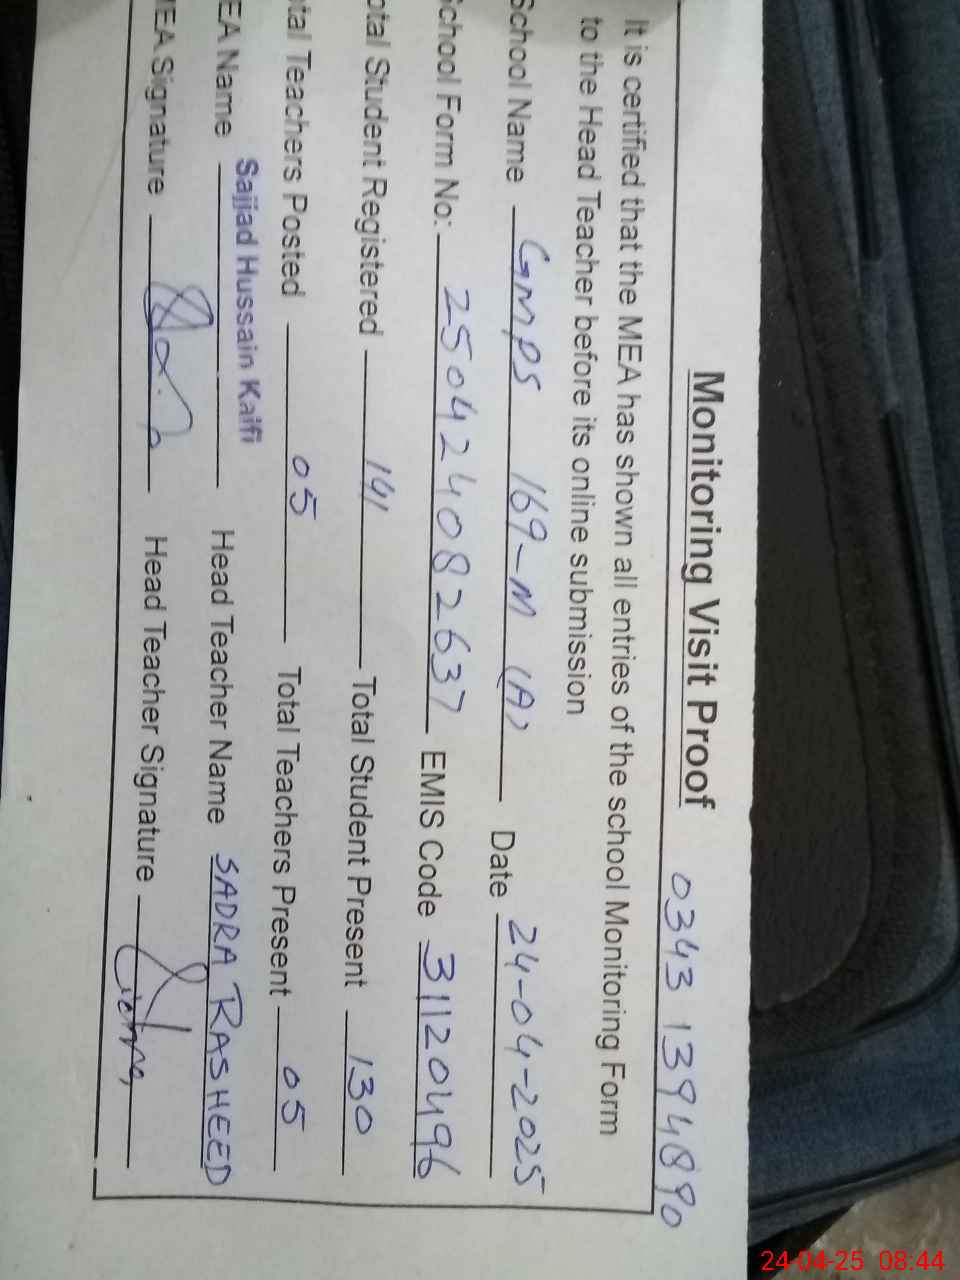 Monitoring Visit Proof 0343 1394890
It is certified that the MEA has shown all entries of the school Monitoring Form
to the Head Teacher before its online submission
School Name GMPS 169-M (A) Date 24-04-2025
School Form No: 250424082637 EMIS Code 31120496
otal Student Registered 141 Total Student Present 130
otal Teachers Posted 05 Total Teachers Present 05
EA Name Sajjad Hussain Kaifi Head Teacher Name SADRA RASHEED
MEA Signature Head Teacher Signature
24-04-25 08:44